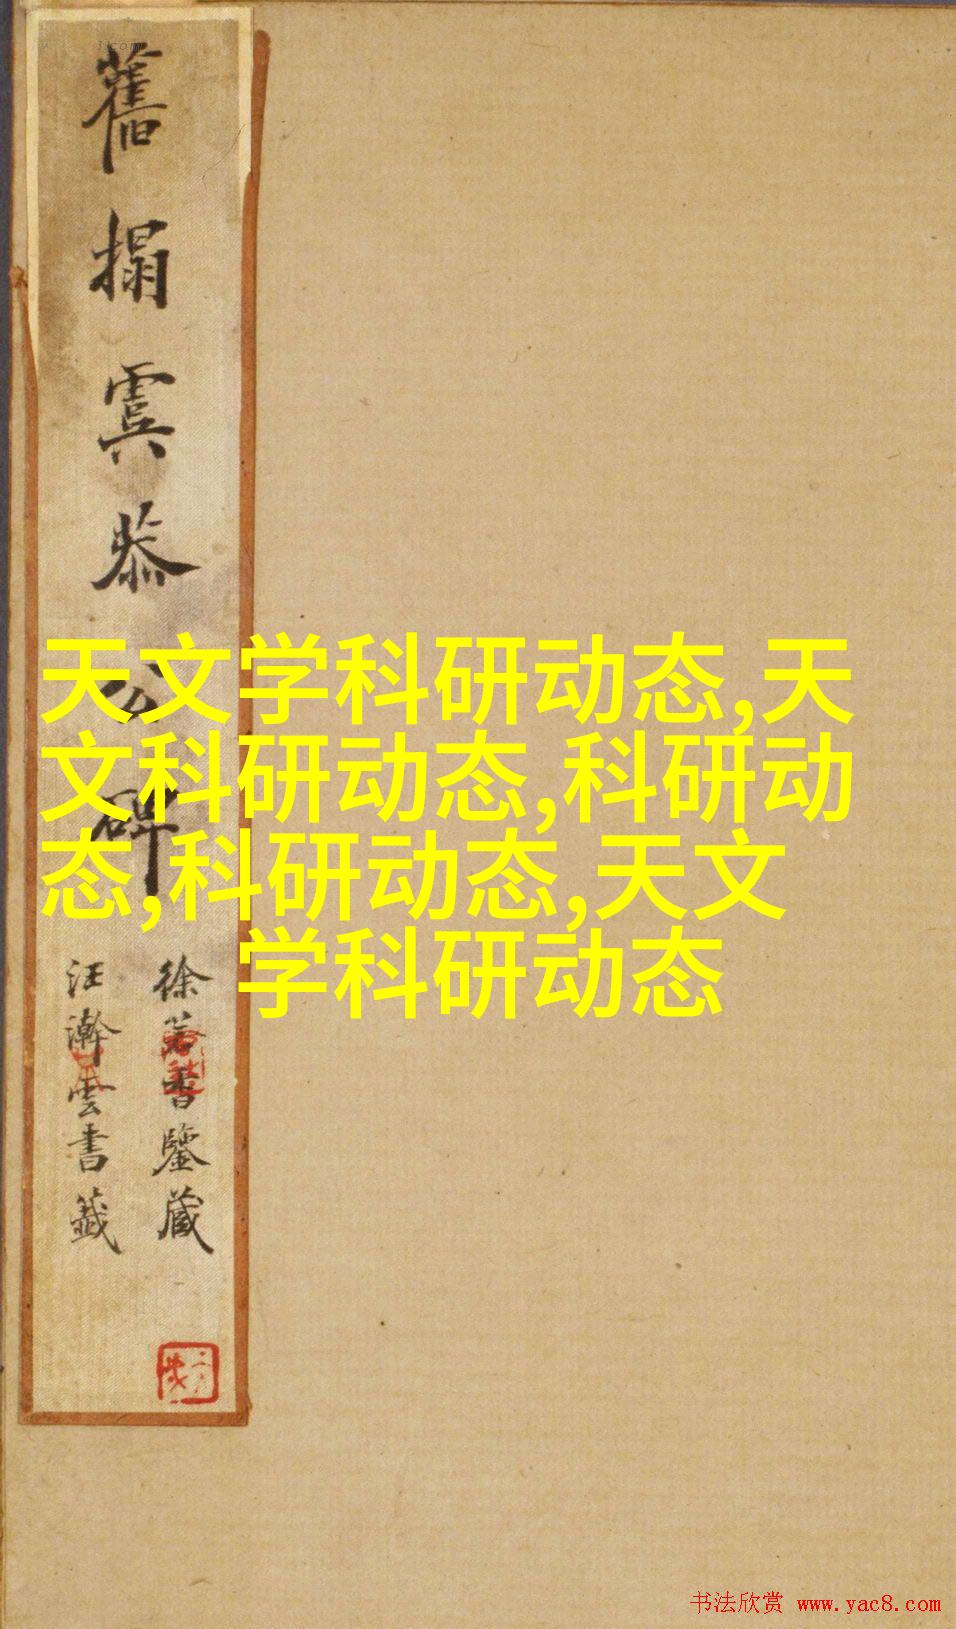 舊搨虞恭公碑
徐若書鑒藏
汪澣雲書籤
天文学科研动态,天
文科研动态,科研动
态,科研动态,天文
学科研动态
书法欣赏 www.yac8.com